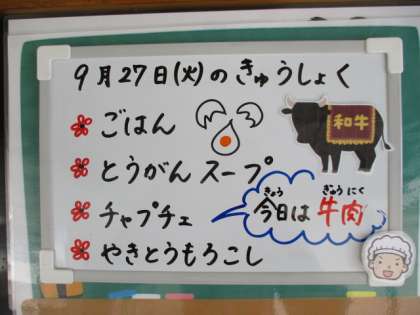 9月27日(火)のきゅうしょく
ごはん
とうがんスープ
チャプチェ
やきとうもろこし
和牛
きょう ぎゅうにく
今日は牛肉